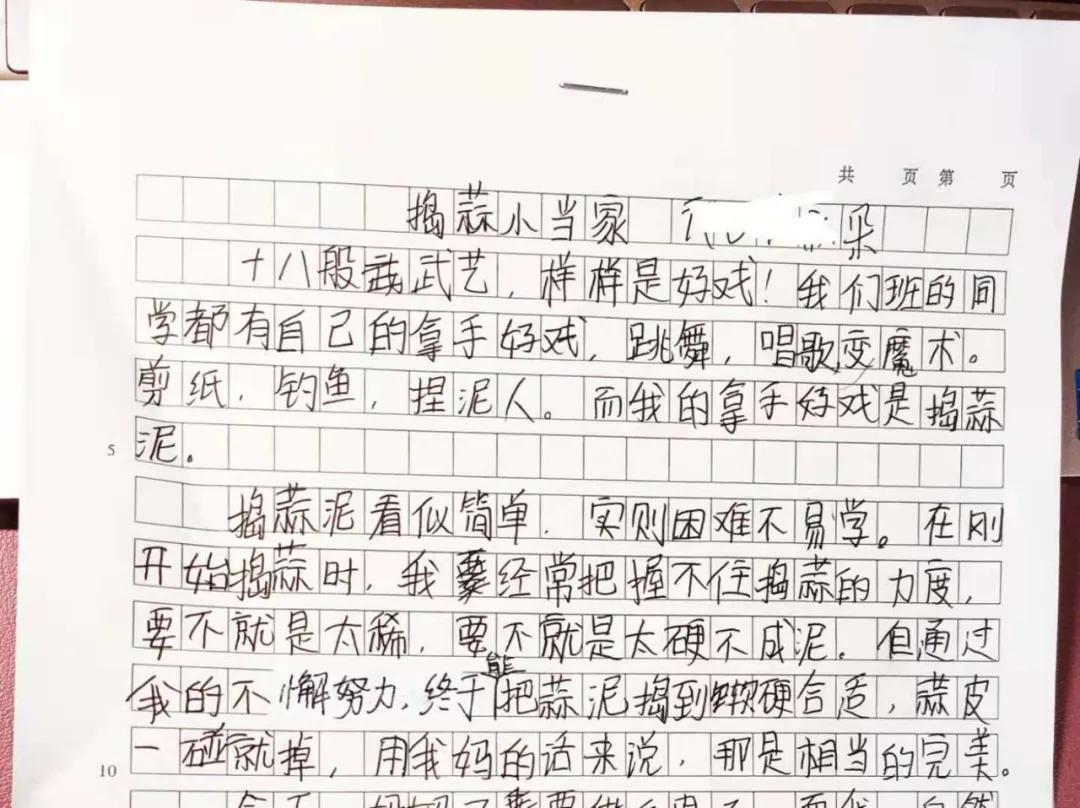 共 页 第 页
捣蒜小当家 朵
十八般武艺，样样是好戏！我们班的同
学都有自己的拿手好戏，跳舞，唱歌，变魔术。
剪纸，钓鱼，捏泥人。而我的拿手好戏是捣蒜
5 泥。
捣蒜泥看似简单，实则困难不易学。在刚
开始捣蒜时，我经常把握不住捣蒜的力度，
要不就是太稀，要不就是太硬不成泥。但通过
我的不懈努力，终于能把蒜泥捣到软硬合适，蒜皮
一碰就掉，用我妈的话来说，那是相当的完美。
10